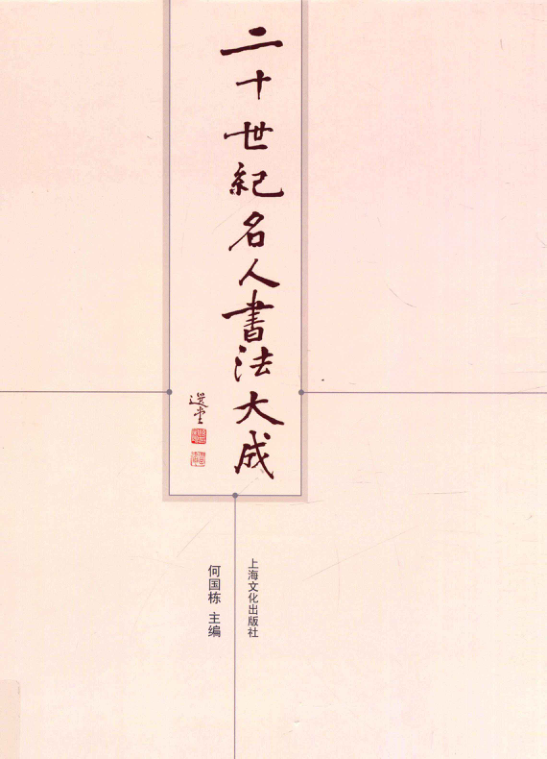 二十世紀名人書法大成
選堂
上海文化出版社
何国栋 主编